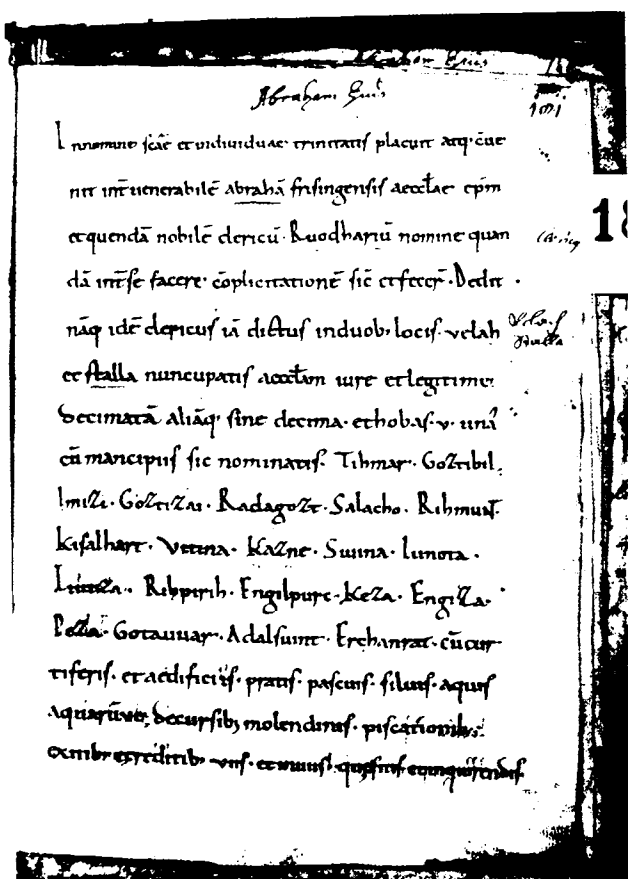 Abraham Epūs
Abraham Epūs
I n nomine scāe et individuae trinitatis placuit atq; c̄ue
nit int̄ venerabilē abrahā frisingensis aecclae ep̄m
et quendā nobilē clericū. Ruodhariū nomine quan
18
dā int̄ se facere c̄oplicitationē sic et fecer̄. Dedit
nāq; idē clericus iā dictus in duob; locis. velah
et stalla nuncupatis aeccłam iure et legitime
decimatā aliāq; sine decima. et hobas. v. unā
cū mancipiis sic nominatis. Tihmar. Goztibil.
Imizi. Goztizai. Radagozt. Salacho. Rihmunt.
Kisalhart. Vttina. Kazne. Suuina. Liuuota.
Ribpirih. Engilpurc. Keza. Engiza.
Peza. Gotauuar. Adalsuint. Erchanrat. cū cur
tiferis. et aedificiis. pratis. pascuis. silvis. aquis
aquarūve decursib; molendinis. piscationib;
exitib; et reditib; viis. et inviis. quesitis et inquirendis.